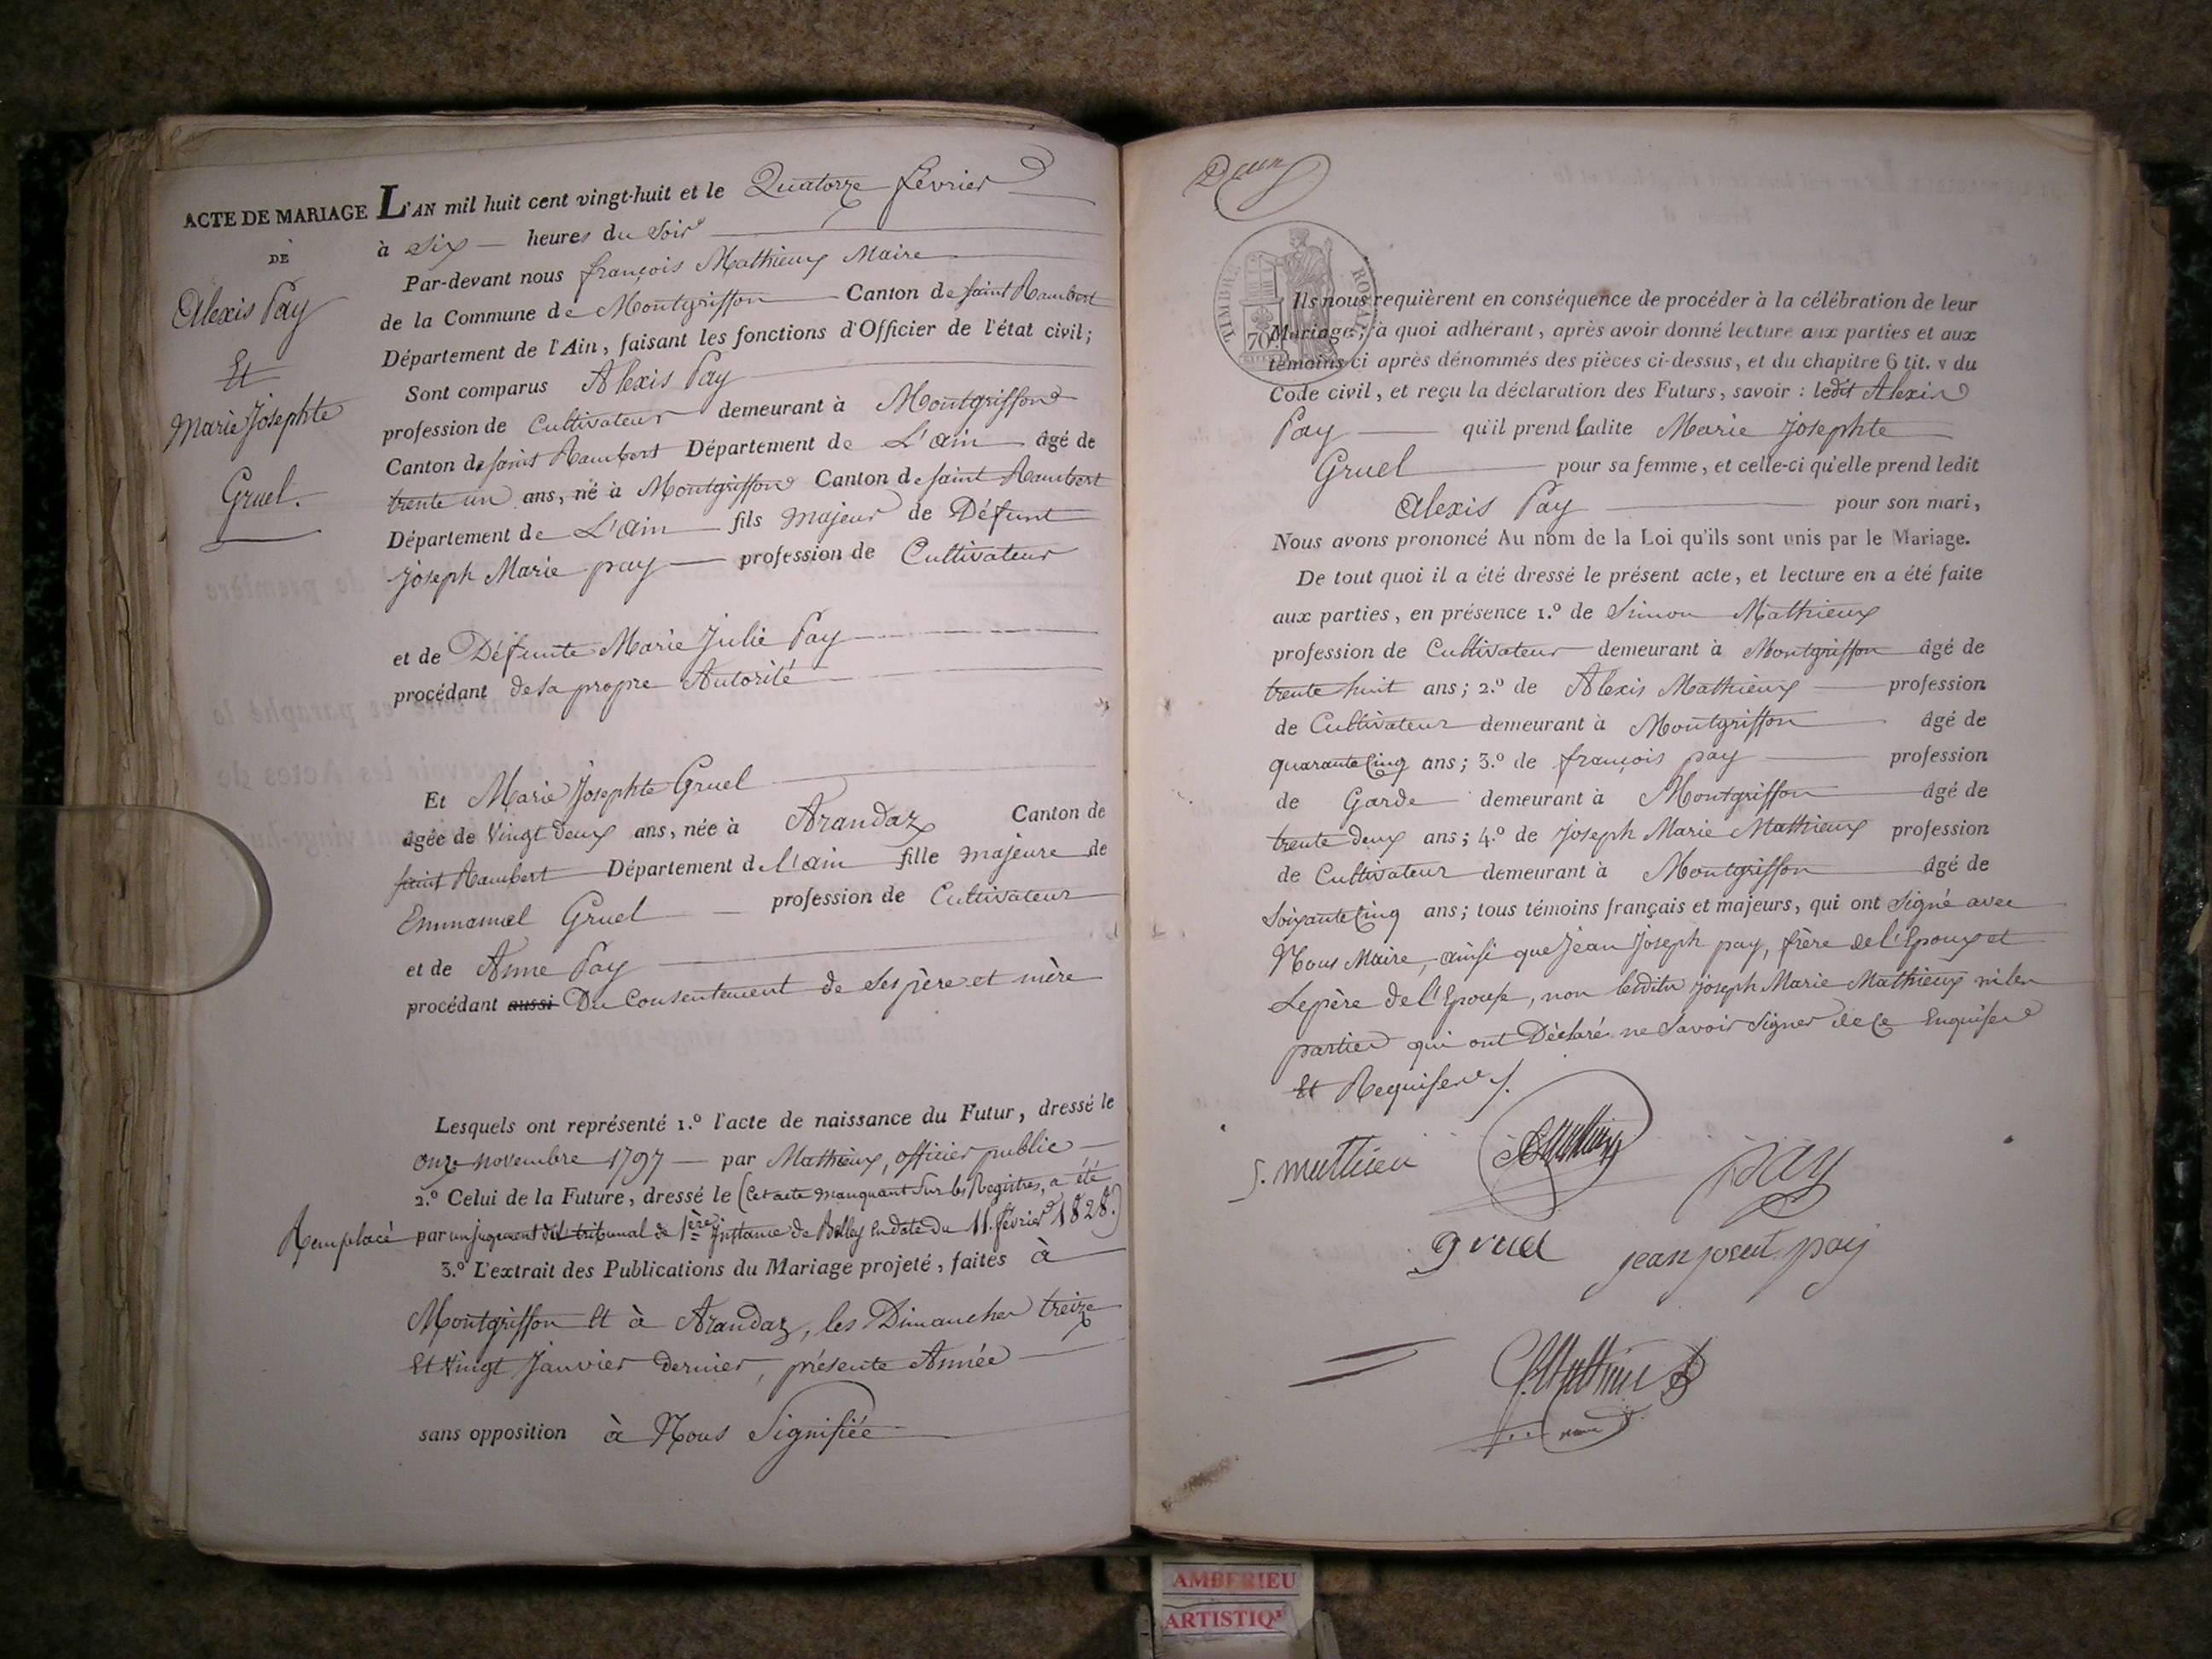 ACTE DE MARIAGE
DE
Alexis Pay
Et
Marie Josephte
Gruel.
L'AN mil huit cent vingt-huit et le Quatorze février
à Six heures du Soir
Par-devant nous françois Mathieux Maire
de la Commune de Montgriffon Canton de saint Rambert
Département de l'Ain, faisant les fonctions d'Officier de l'état civil;
Sont comparus Alexis Pay
profession de Cultivateur demeurant à Montgriffon
Canton de saint Rambert Département de L'ain âgé de
trente un ans, né à Montgriffon Canton de saint Rambert
Département de L'ain fils Majeur de Défunt
Joseph Marie pay profession de Cultivateur
et de Défunte Marie Julie Pay
procédant de sa propre Autorité
Et Marie Josephte Gruel
âgée de Vingt deux ans, née à Arandaz Canton de
saint Rambert Département de l'ain fille majeure de
Emmanuel Gruel profession de Cultivateur
et de Anne Pay
procédant aussi Du Consentement de Ses père et mère
Lesquels ont représenté 1.º l'acte de naissance du Futur, dressé le
onze novembre 1797 par Mathieux, officier public
2.º Celui de la Future, dressé le (Cet acte manquant Sur les Registres, a été
Remplacé par un jugement du tribunal de 1ère instance de Belley en date du 11. février 1828.)
3.º L'extrait des Publications du Mariage projeté, faites à
Montgriffon Et à Arandaz, les Dimanches treize
Et Vingt Janvier dernier, présente Année
sans opposition à Nous Signifiée
TIMBRE ROYAL
70
Ils nous requièrent en conséquence de procéder à la célébration de leur
Mariage; à quoi adhérant, après avoir donné lecture aux parties et aux
témoins ci après dénommés des pièces ci-dessus, et du chapitre 6 tit. v du
Code civil, et reçu la déclaration des Futurs, savoir: ledit Alexis
Pay qu'il prend ladite Marie Josephte
Gruel pour sa femme, et celle-ci qu'elle prend ledit
Alexis Pay pour son mari,
Nous avons prononcé Au nom de la Loi qu'ils sont unis par le Mariage.
De tout quoi il a été dressé le présent acte, et lecture en a été faite
aux parties, en présence 1.º de Simon Mathieux
profession de Cultivateur demeurant à Montgriffon âgé de
trente huit ans; 2.º de Alexis Mathieux profession
de Cultivateur demeurant à Montgriffon âgé de
quarante Cinq ans; 3.º de françois pay profession
de Garde demeurant à Montgriffon âgé de
trente deux ans; 4.º de Joseph Marie Mathieux profession
de Cultivateur demeurant à Montgriffon âgé de
Soixante Cinq ans; tous témoins français et majeurs, qui ont Signé avec
Nous Maire, ainsi que Jean Joseph pay, frère de l'Epoux et
Le père de l'Epouse, non ledit Joseph Marie Mathieux ni les
parties qui ont Déclaré ne Savoir Signer de Ce Enquises
Et Requises
S. mathieu
pay
gruel
jean joseph pay
AMBERIEU
ARTISTIQ